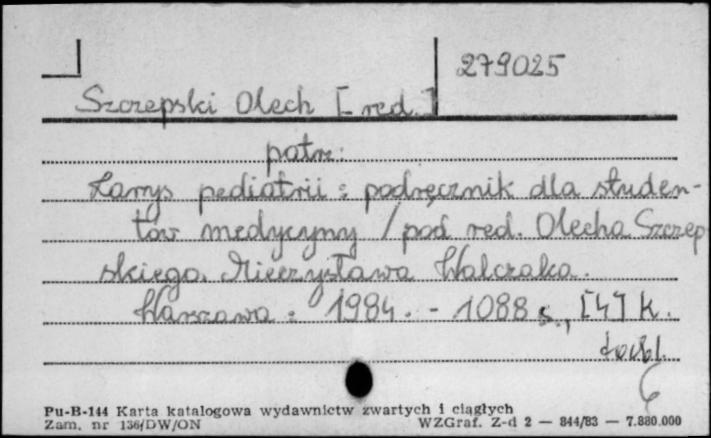 279025
Szczepski Olech [red.]
patrz:
Zarys pediatrii : podręcznik dla studen-
tów medycyny / pod red. Olecha Szczep
skiego, Mieczysława Walczaka.
Warszawa : 1984. - 1088 s., [4] k.
Pu-B-144 Karta katalogowa wydawnictw zwartych i ciągłych
Zam. nr 136/DW/ON WZGraf. Z-d 2 — 844/83 — 7.880.000